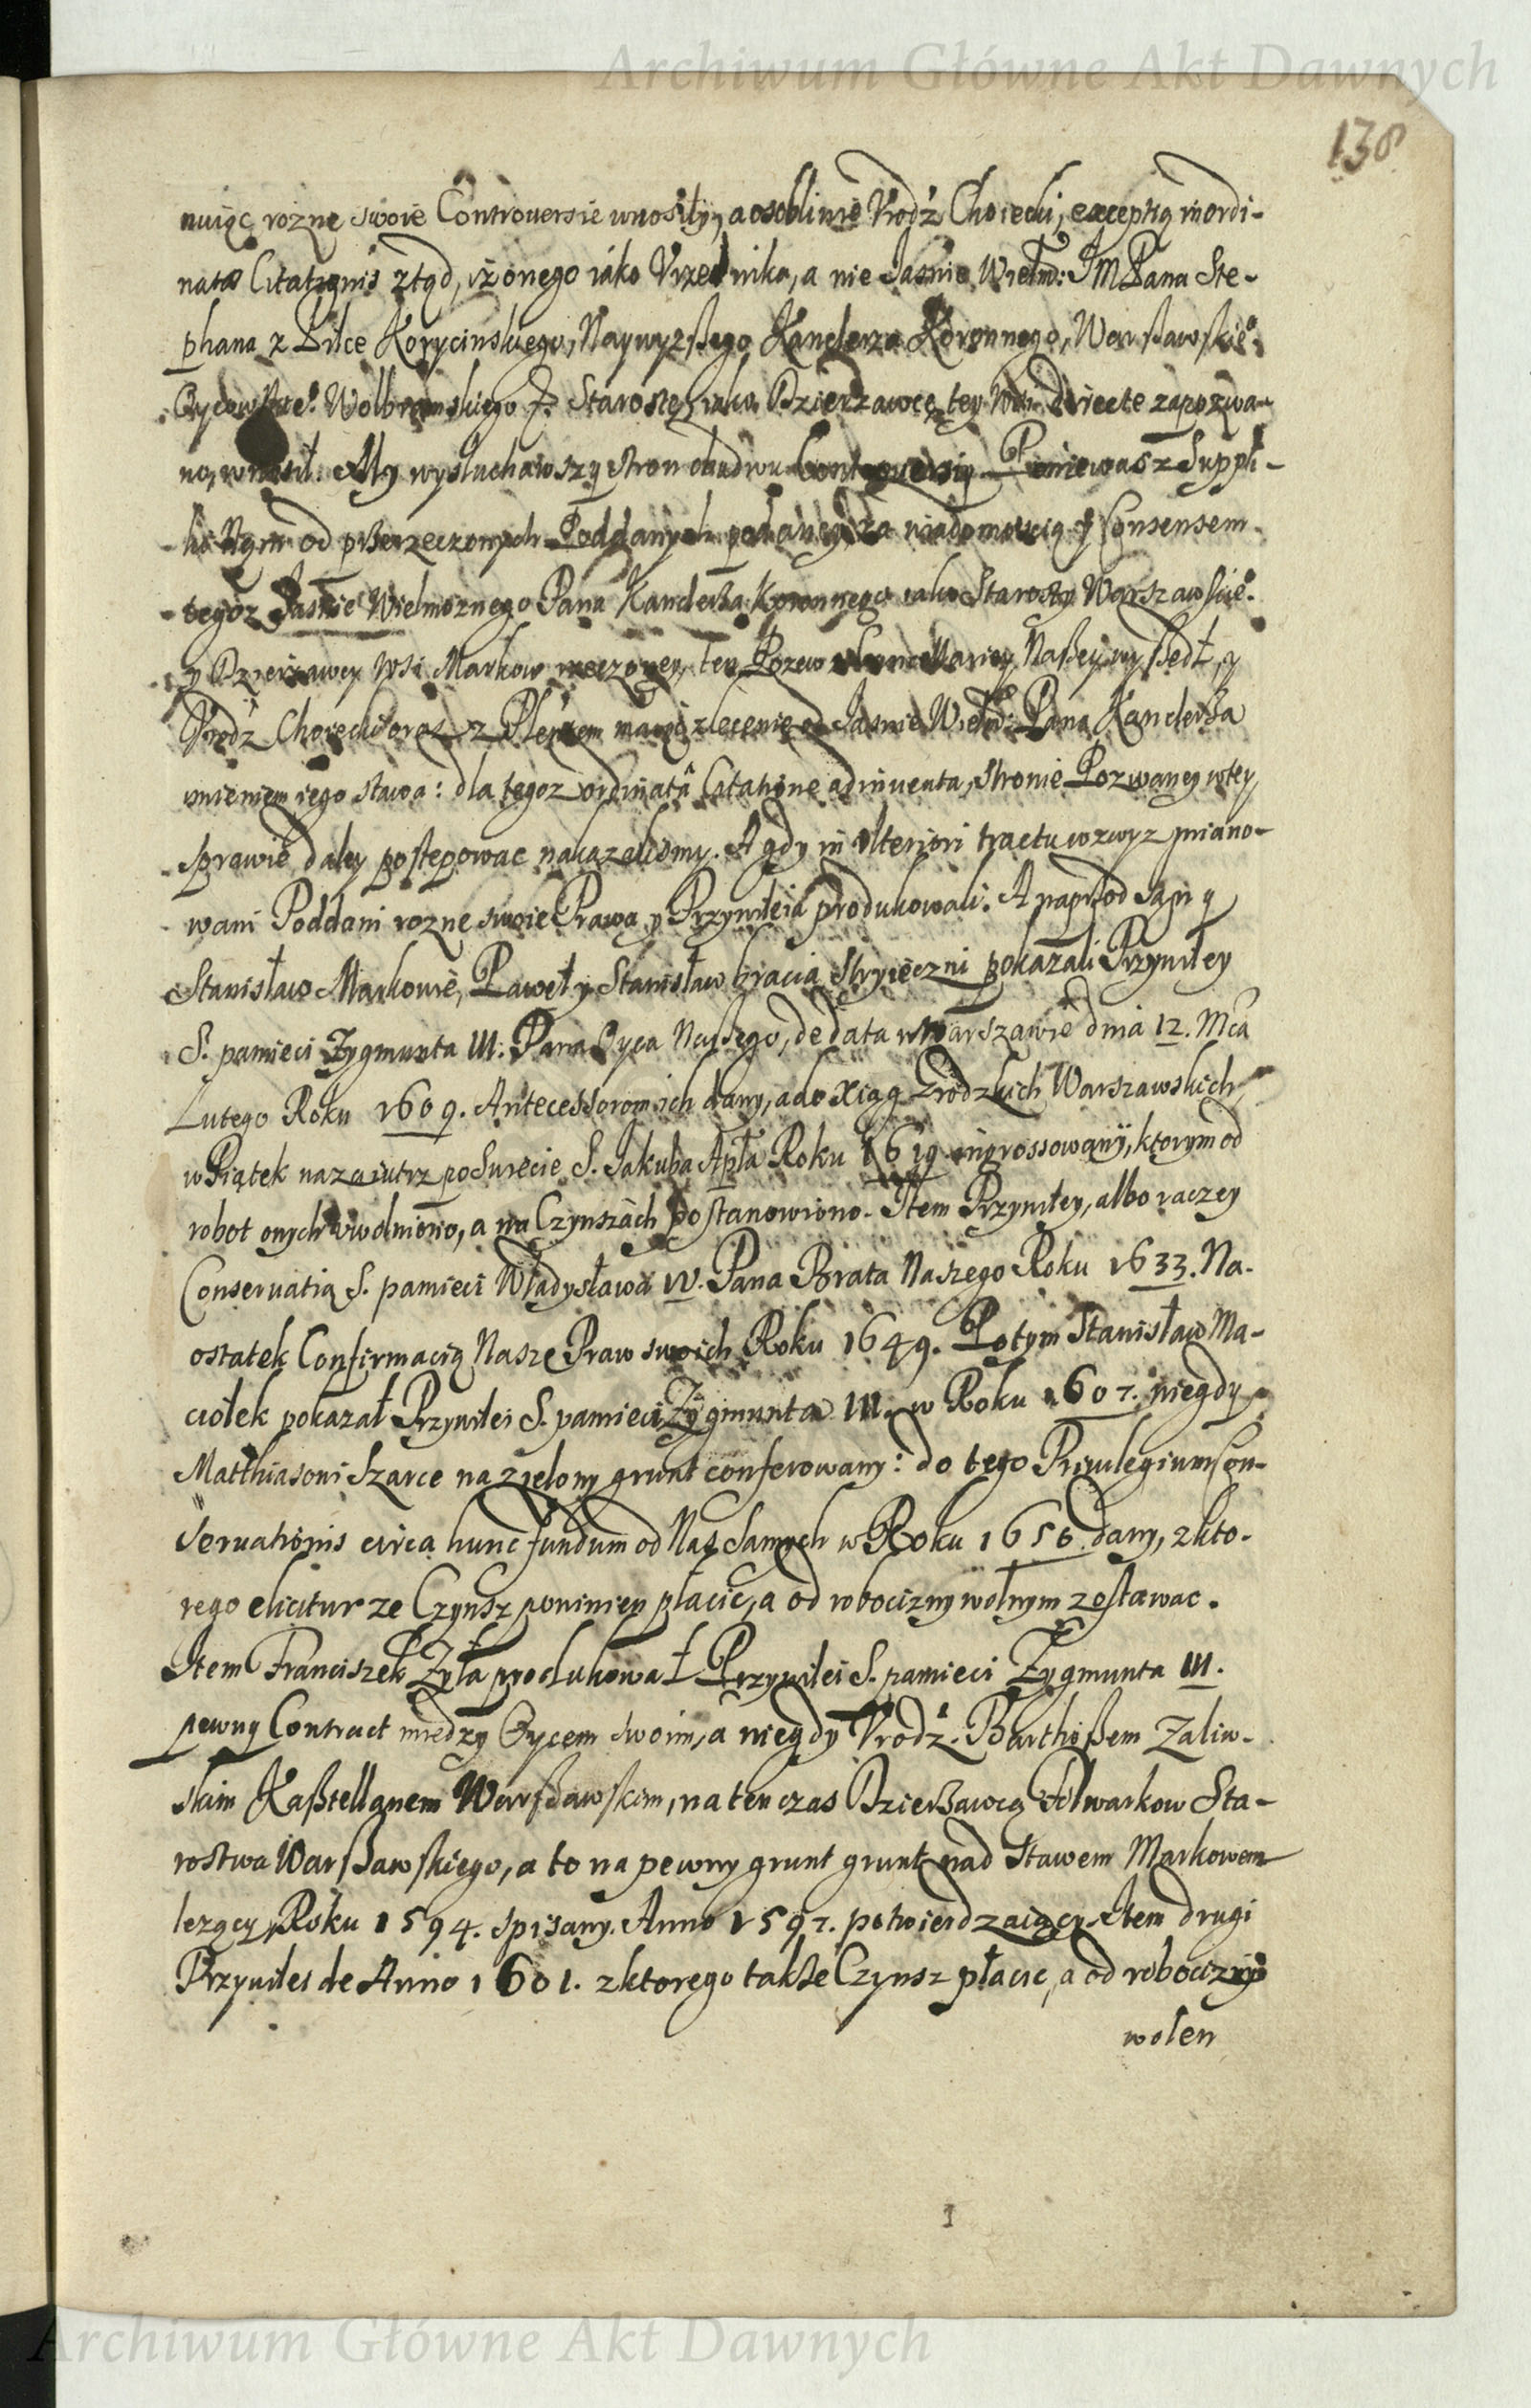 Archiwum Główne Akt Dawnych
138
nuiąc rozne swoie Controuersie wnosiły, a osobliwie Vrodź Choiecki, exceptią inordi-
natæ Citationis ztąd, iż onego iako Vrzednika, a nie Jasnie Wielm: IM Pana Ste-
phana z Pilce Korycinskiego, Naywyzszego Kanclerza Koronnego, Warszawskieº
Oycowskieº Wolbromskiego Starostę, iako Dzierżawcę tey Wsi directe zapozwa-
no, wnosił. My wysłuchawszy stron obudwu Controuersiy. Ponieważ z Suppli-
od przerzeczonych Poddanych podaney, za wiadomoscią y Consensem
tegoż Jasnie Wielmożnego Pana Kanclerza Koronnego iako Starosty Warszawskieº
y Dzierżawcy Wsi Markow rzeczoney, ten Pozew z Cancellariey Naszey wyszedł, y
Vrodź Choiecki oraz z Plenipotem maiąc zlecenie od Jasnie Wielm: Pana Kanclerza
imieniem iego stawa: dla tegoż ordinatâ Citatione adinuenta, stronie Pozwaney w tey
sprawie daley postępowac nakazalismy. A gdy in vlteriori tractu wzwyż miano-
wani Poddani rozne swoie Prawa y Przywileia produkowali. A naprzod
Stanisław Markowie, Paweł y Stanisław bracia stryieczni pokazali Przywiley
S. pamieci Zygmunta III. Pana Oyca Naszego, de data w Warszawie dnia 12. Mca
Lutego Roku 1609. Antecessorom ich dany, a do Xiąg Grodzkich Warszawskich,
w Piątek nazaiutrz po Swiecie S. Jakuba Apła Roku 1619 ingrossowany, ktorym od
robot onych vwolniono, a na Czynszach postanowiono. Item Przywiley, albo raczey
Conseruatią S. pamieci Władysława IV. Pana Brata Naszego Roku 1633. Na-
ostatek Confirmacią Nasze Praw swoich Roku 1649. Potym Stanisław Ma-
ciołek pokazał Przywilei S. pamieci Zygmunta III. w Roku 1607. niegdy
Matthiasowi Szarce na zielony grunt conferowany: do tego Priuilegium Con-
seruationis circa hunc fundum od Nas samych w Roku 1650. dany, z kto-
rego elicitur ze Czynsz powinien płacic, a od robocizny wolnym zostawac.
Item Franciszek Zyła produkował Przywilei S. pamieci Zygmunta III.
pewny Contract miedzy Oycem swoim, a niegdy Vrodź. Barthoszem Zaliw-
skim Kasztellanem Warszawskim, na ten czas Dzierżawcą Folwarkow Sta-
rostwa Warszawskiego, a to na pewny grunt grunt nad Stawem Markowem
lezący, Roku 1594. spisany. Anno 1597. potwierdzaiący. Item drugi
Przywilei de Anno 1601. z ktorego także Czynsz płacic, a od robocizny
wolen
Archiwum Główne Akt Dawnych